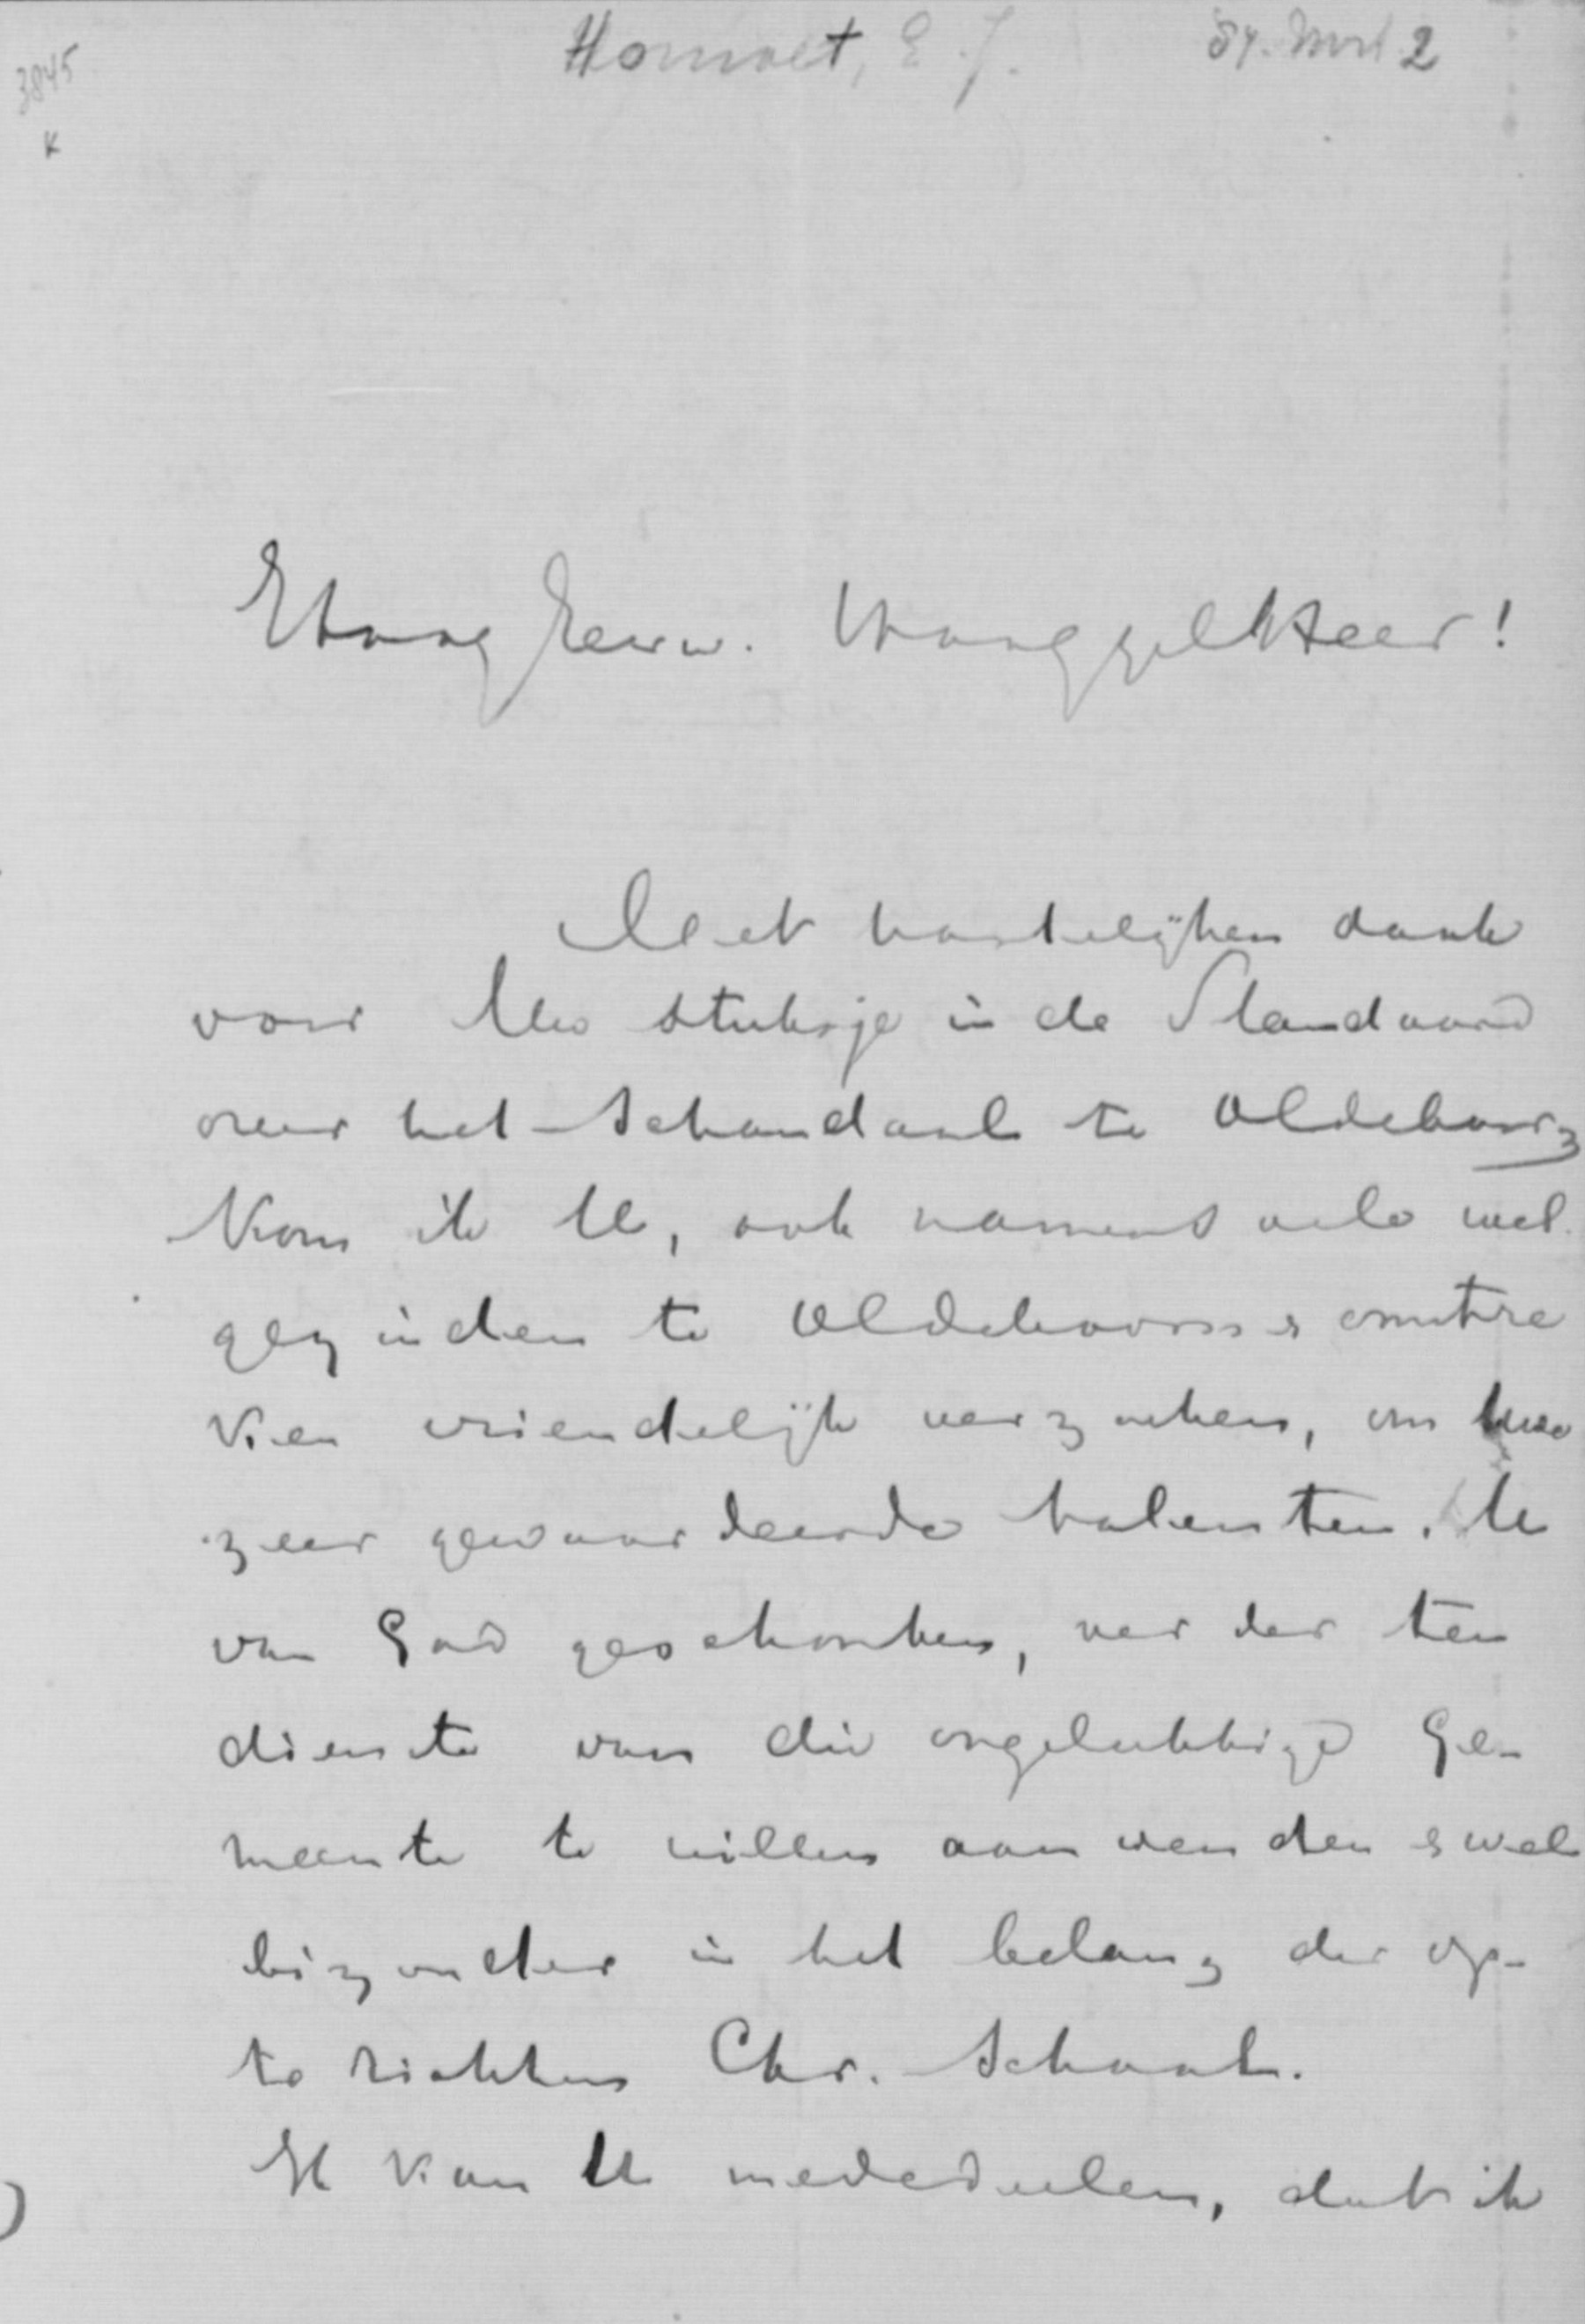 3845
K
Homoet, E. J.
2
Hoog Eerw. Hooggel Heer!
Met hartelijken dank
voor Uw stukje in de Standaard
over het schandaal te Oldeboorn
Kom ik U, ook namens vele wel-
gezinden te Oldeboorn & omstre
Ken vriendelijk verzoeken, om Uwe
zeer gewaardeerde talenten, U
van God geschonken, verder ten
dienste van die ongelukkige Ge-
meente te willen aanwenden & wel
bizonder in het belang der op-
te richten Chr. School.
Ik Kan U mededeelen, dat ik